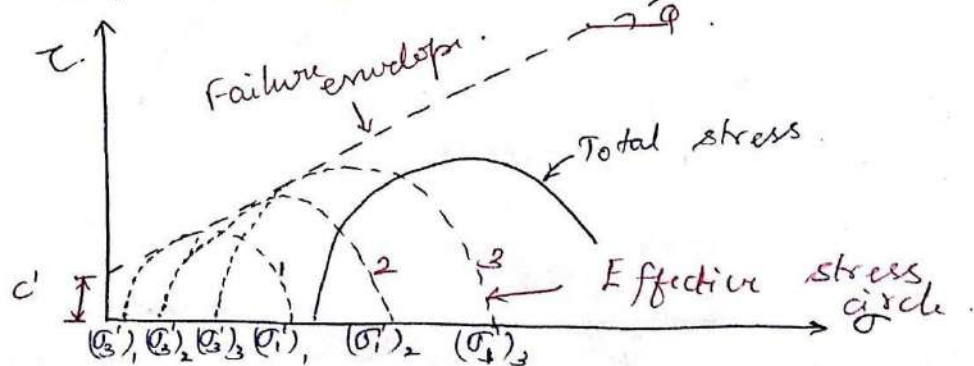 τ.
φ
Failure envelope.
Total stress.
1
2
3
c'
Effective stress
circle.
(σ₃')₁ (σ₃')₂ (σ₃')₃ (σ₁')₁ (σ₁')₂ (σ₁')₃